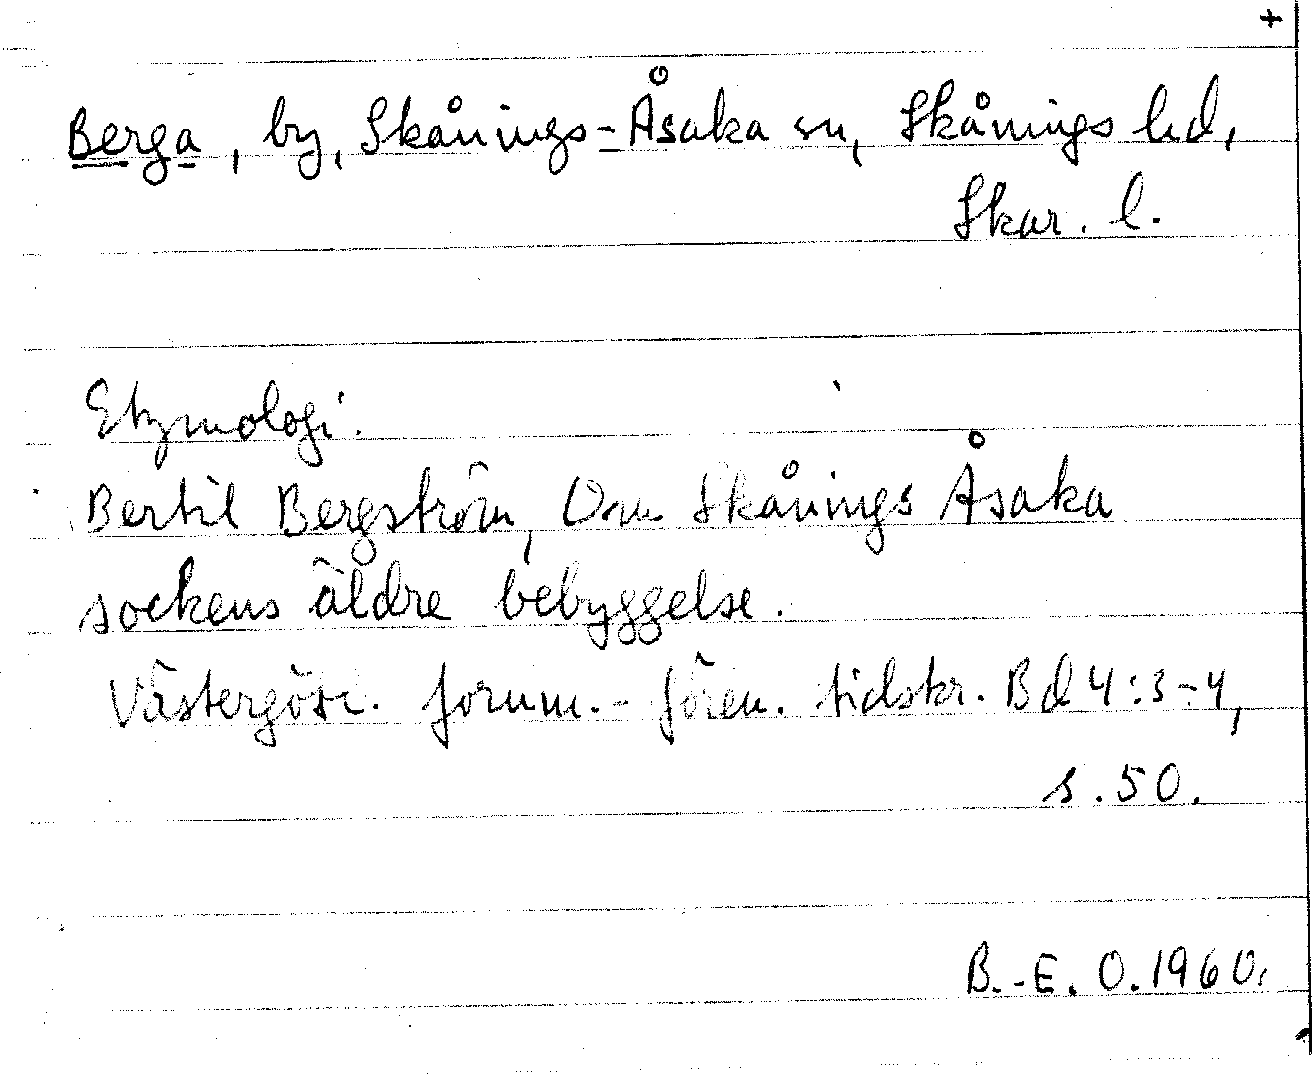 +
Berga, by, Skånings-Åsaka sn, Skånings hd,
Skar. l.
Etymologi.
Bertil Bergström, Om Skånings Åsaka
sockens äldre bebyggelse.
Västergötl. fornm.-fören. tidskr. Bd 4:3-4,
s. 50.
B.-E. O. 1960.